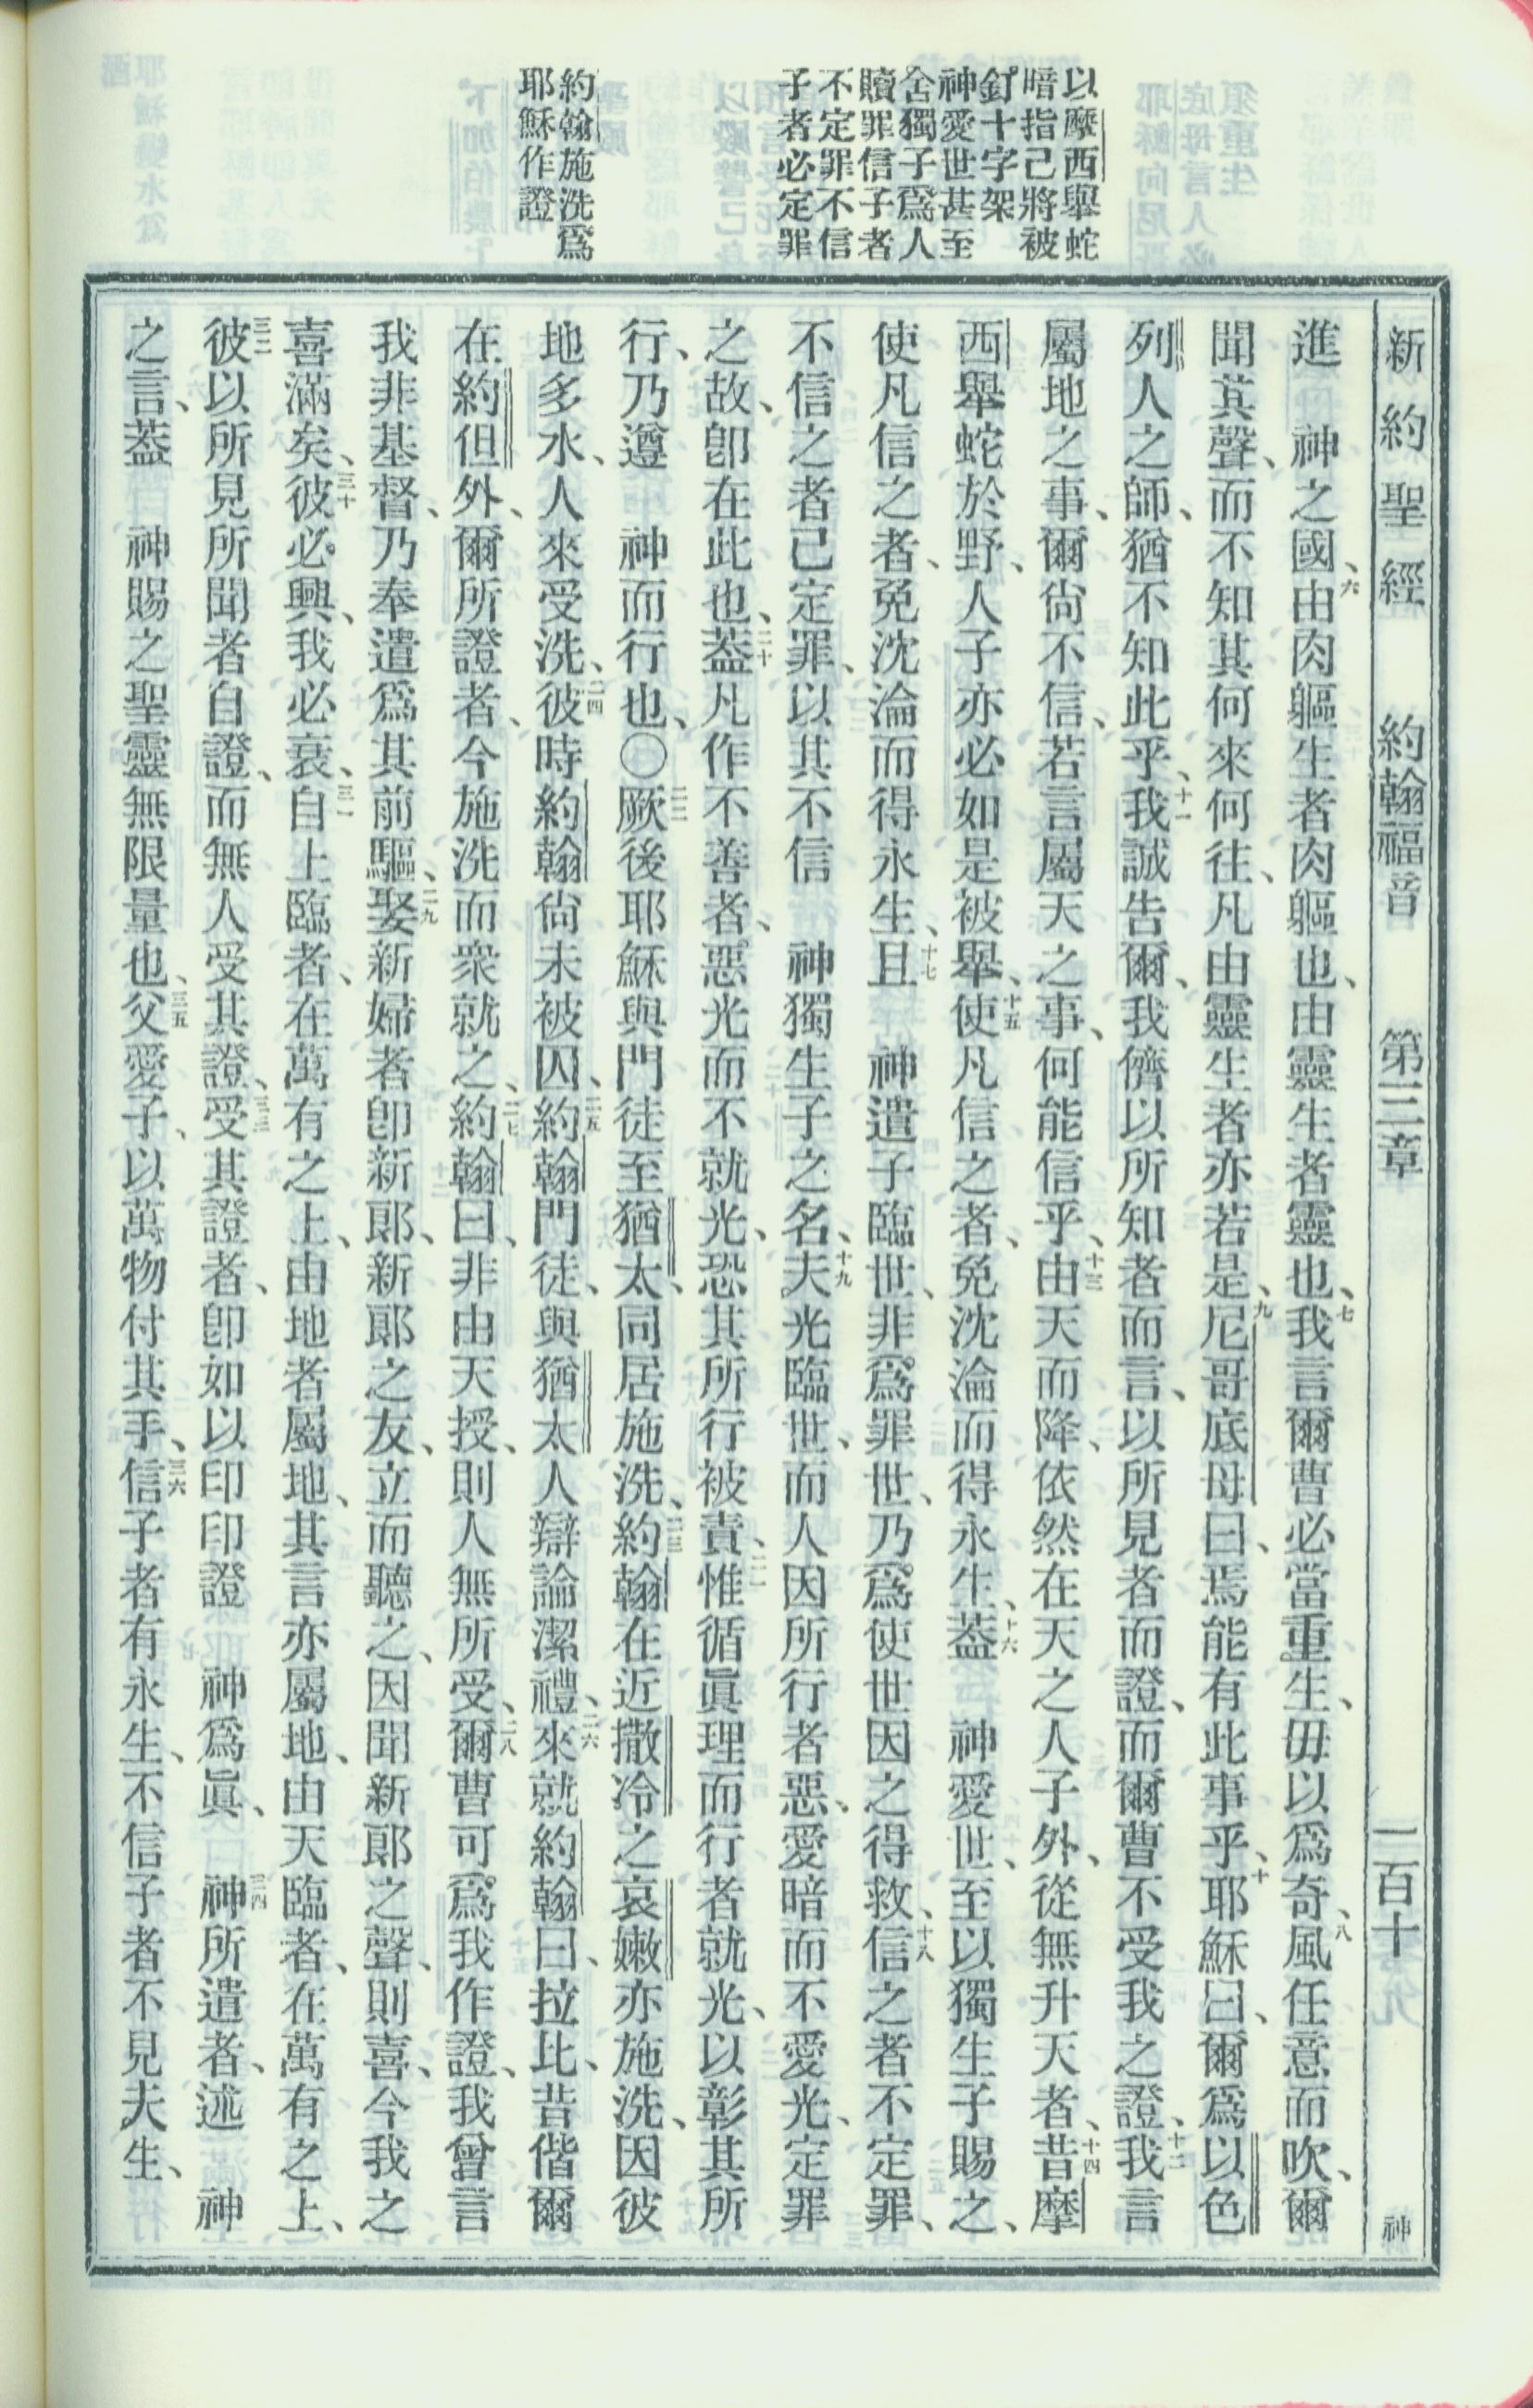 以摩西舉蛇
暗指己將被
釘十字架
神愛世甚至
舍獨子爲人
贖罪信子者
不定罪不信
子者必定罪
約翰施洗爲
耶穌作證
新約聖經 約翰福音 第三章 二百十 神
進 神之國、六由肉軀生者肉軀也、由靈生者靈也、七我言爾曹必當重生、毋以爲奇、八風任意而吹、爾
聞其聲、而不知其何來何往、凡由靈生者亦若是、九尼哥底母曰、焉能有此事乎、十耶穌曰、爾爲以色
列人之師、猶不知此乎、十一我誠告爾、我儕以所知者而言、以所見者而證、而爾曹不受我之證、十二我言
屬地之事、爾尙不信、若言屬天之事、何能信乎、十三由天而降、依然在天之人子外、從無升天者、十四昔摩
西舉蛇於野、人子亦必如是被舉、十五使凡信之者、免沈淪而得永生、十六蓋 神愛世、至以獨生子賜之、
使凡信之者、免沈淪而得永生、十七且 神遣子臨世、非爲罪世、乃爲使世因之得救、十八信之者不定罪、
不信之者已定罪、以其不信 神獨生子之名、十九夫光臨世、而人因所行者惡、愛暗而不愛光、定罪
之故、卽在此也、二十蓋凡作不善者、惡光而不就光、恐其所行被責、二一惟循眞理而行者就光、以彰其所
行、乃遵 神而行也、〇二二厥後耶穌與門徒至猶太、同居施洗、二三約翰在近撒冷之哀嫩亦施洗、因彼
地多水、人來受洗、二四彼時約翰尙未被囚、二五約翰門徒、與猶太人辯論潔禮、二六來就約翰曰、拉比、昔偕爾
在約但外、爾所證者、今施洗而衆就之、二七約翰曰、非由天授、則人無所受、二八爾曹可爲我作證、我曾言
我非基督、乃奉遣爲其前驅、二九娶新婦者卽新郞、新郞之友、立而聽之、因聞新郞之聲、則喜、今我之
喜滿矣、三十彼必興、我必衰、三一自上臨者、在萬有之上、由地者屬地、其言亦屬地、由天臨者、在萬有之上、
三二彼以所見所聞者自證、而無人受其證、三三受其證者、卽如以印印證 神爲眞、三四 神所遣者、述 神
之言、蓋 神賜之聖靈無限量也、三五父愛子、以萬物付其手、三六信子者有永生、不信子者不見夫生、